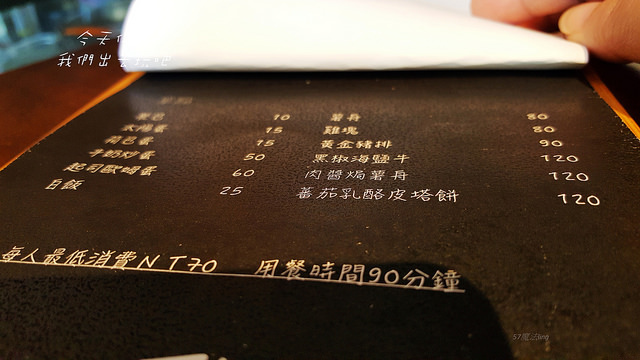 今天
我們出去玩吧
10 薯舟 80
太陽蛋 15 雞塊 80
荷包蛋 15 黃金豬排 90
牛奶炒蛋 50 黑椒海鹽牛 120
起司歐姆蛋 60 肉醬焗薯舟 120
白飯 25 蕃茄乳酪皮塔餅 120
每人最低消費NT70 用餐時間90分鐘